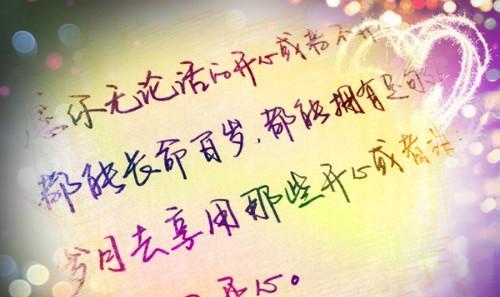 你无论活的开心或者不开
都能长命百岁,都能拥有足够
岁月去享用那些开心或者
不开心。